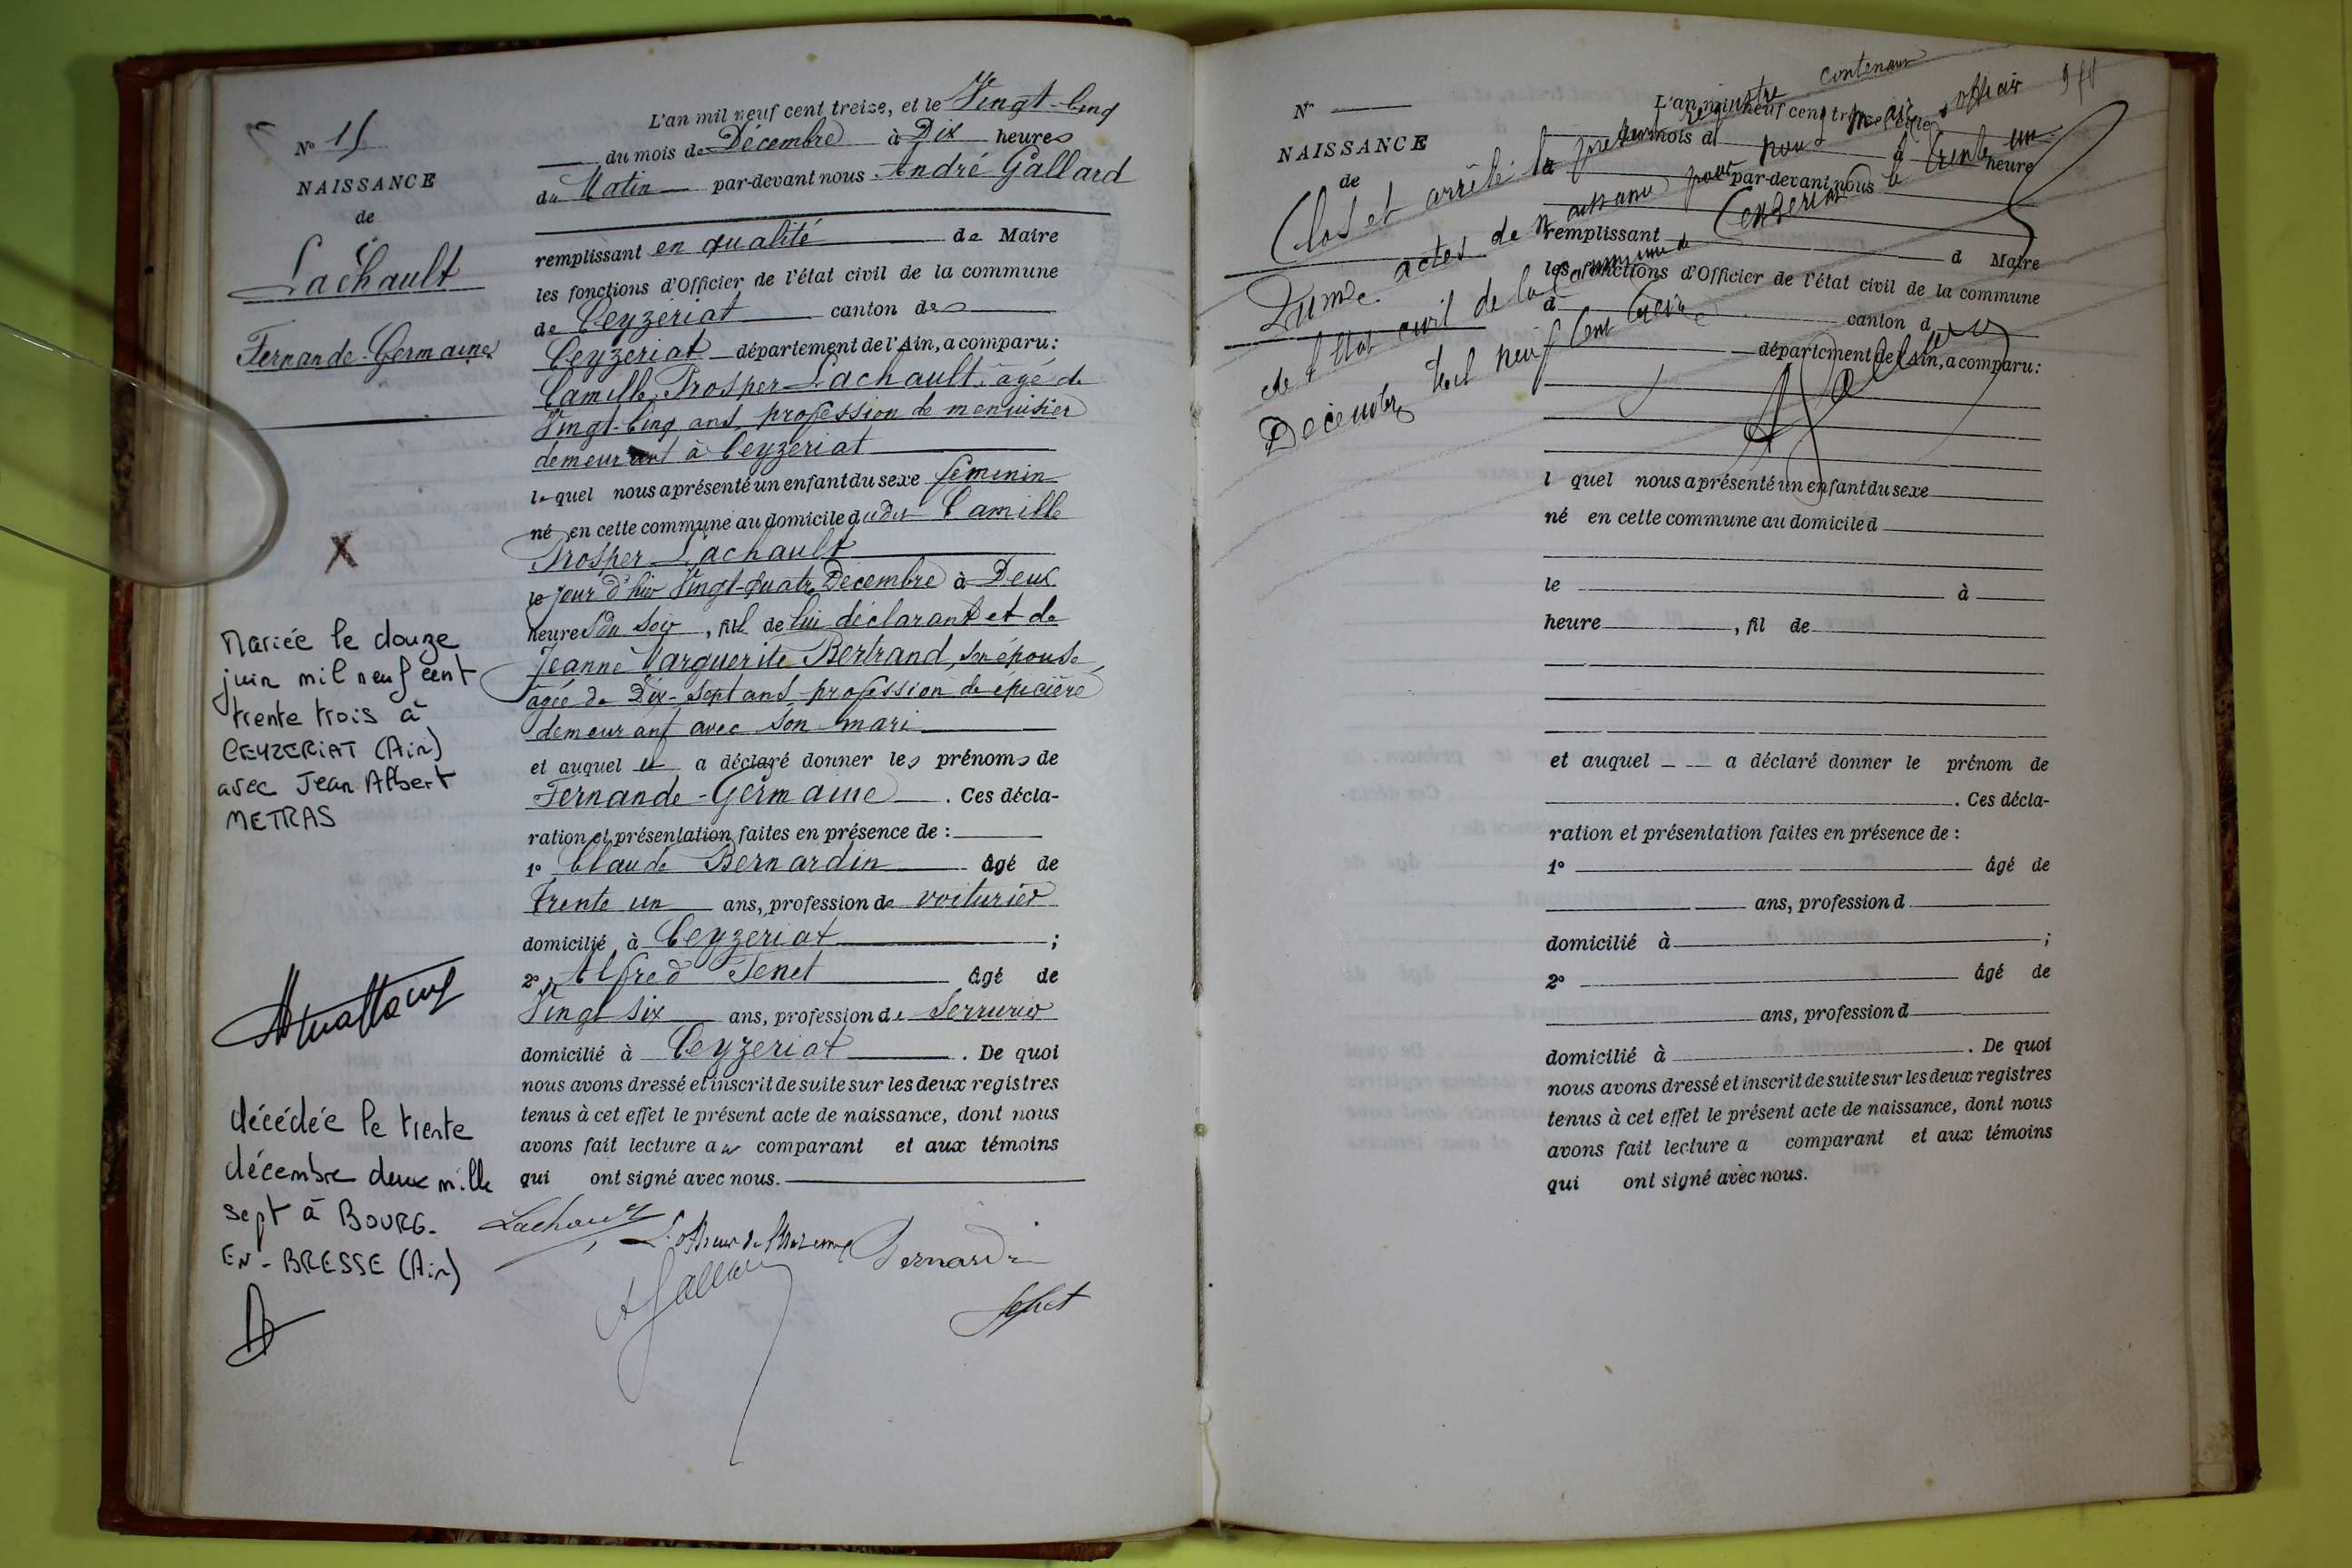 N° 15
NAISSANCE
de
Lachault
Fernande-Germaine
X
Mariée le douze
juin mil neuf cent
trente trois à
CEYZERIAT (Ain)
avec Jean Albert
METRAS
décédée le trente
décembre deux mille
sept à BOURG-
EN-BRESSE (Ain)
L'an mil neuf cent treize, et le Vingt-Cinq
du mois de Décembre à Dix heures
du Matin par-devant nous André Gallard
remplissant en qualité de Maire
les fonctions d'Officier de l'état civil de la commune
de Ceyzeriat canton de
Ceyzeriat département de l'Ain, a comparu:
Camille Prosper Lachault, âgé de
Vingt-Cinq ans, profession de menuisier
demeurant à Ceyzeriat
lequel nous a présenté un enfant du sexe féminin
né en cette commune au domicile dudit Camille
Prosper Lachault
le jour d'hier Vingt-quatre Décembre à Deux
heures du Soir, fil de lui déclarant et de
Jeanne Marguerite Bertrand, son épouse,
âgée de Dix-Sept ans profession de épicière
demeurant avec son mari
et auquel il a déclaré donner les prénoms de
Fernande-Germaine. Ces décla-
ration et présentation faites en présence de :
1° Claude Bernardin âgé de
trente un ans, profession de voiturier
domicilié à Ceyzeriat ;
2° Alfred Tenet âgé de
Vingt Six ans, profession de Serrurier
domicilié à Ceyzeriat. De quoi
nous avons dressé et inscrit de suite sur les deux registres
tenus à cet effet le présent acte de naissance, dont nous
avons fait lecture au comparant et aux témoins
qui ont signé avec nous.
Lachault
L'officier de l'Etat civil
Bernardin
A Gallard
N°
NAISSANCE
de
Clos et arrêté le présent registre contenant
actes de naissance pour nous Maire officier
de l'Etat civil de la Commune de Ceyzeriat le trente un
Décembre mil neuf Cent treize
A Gallard
L'an mil neuf cent treize, et le
du mois d à heure
par-devant nous
remplissant d Maire
les fonctions d'Officier de l'état civil de la commune
d canton d
département de l'Ain, a comparu:
l quel nous a présenté un enfant du sexe
né en cette commune au domicile d
le à
heure , fil de
et auquel a déclaré donner le prénom de
. Ces décla-
ration et présentation faites en présence de :
1° âgé de
ans, profession d
domicilié à ;
2° âgé de
ans, profession d
domicilié à . De quoi
nous avons dressé et inscrit de suite sur les deux registres
tenus à cet effet le présent acte de naissance, dont nous
avons fait lecture a comparant et aux témoins
qui ont signé avec nous.